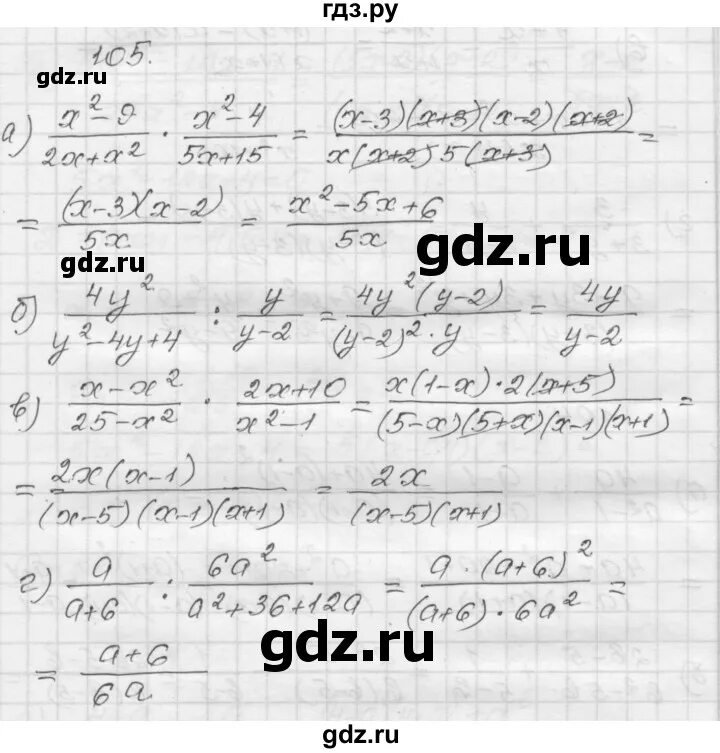 гдз.ру
105.
gdz.ru gdz.ru
а) (x² - 9)/(2x + x²) · (x² - 4)/(5x + 15) = ((x-3)(x+3)(x-2)(x+2))/(x(x+2)5(x+3)) =
= ((x-3)(x-2))/(5x) = (x² - 5x + 6)/(5x)
gdz.ru gdz.ru
б) (4y²)/(y² - 4y + 4) : y/(y-2) = (4y²(y-2))/((y-2)² · y) = (4y)/(y-2)
в) (x - x²)/(25 - x²) · (2x + 10)/(x² - 1) = (x(1-x) · 2(x+5))/((5-x)(5+x)(x-1)(x+1)) =
= (2x(x-1))/((x-5)(x-1)(x+1)) = (2x)/((x-5)(x+1))
г) a/(a+6) : (6a²)/(a² + 36 + 12a) = (a · (a+6)²)/((a+6) · 6a²) =
gdz.ru
= (a+6)/(6a)
gdz.ru